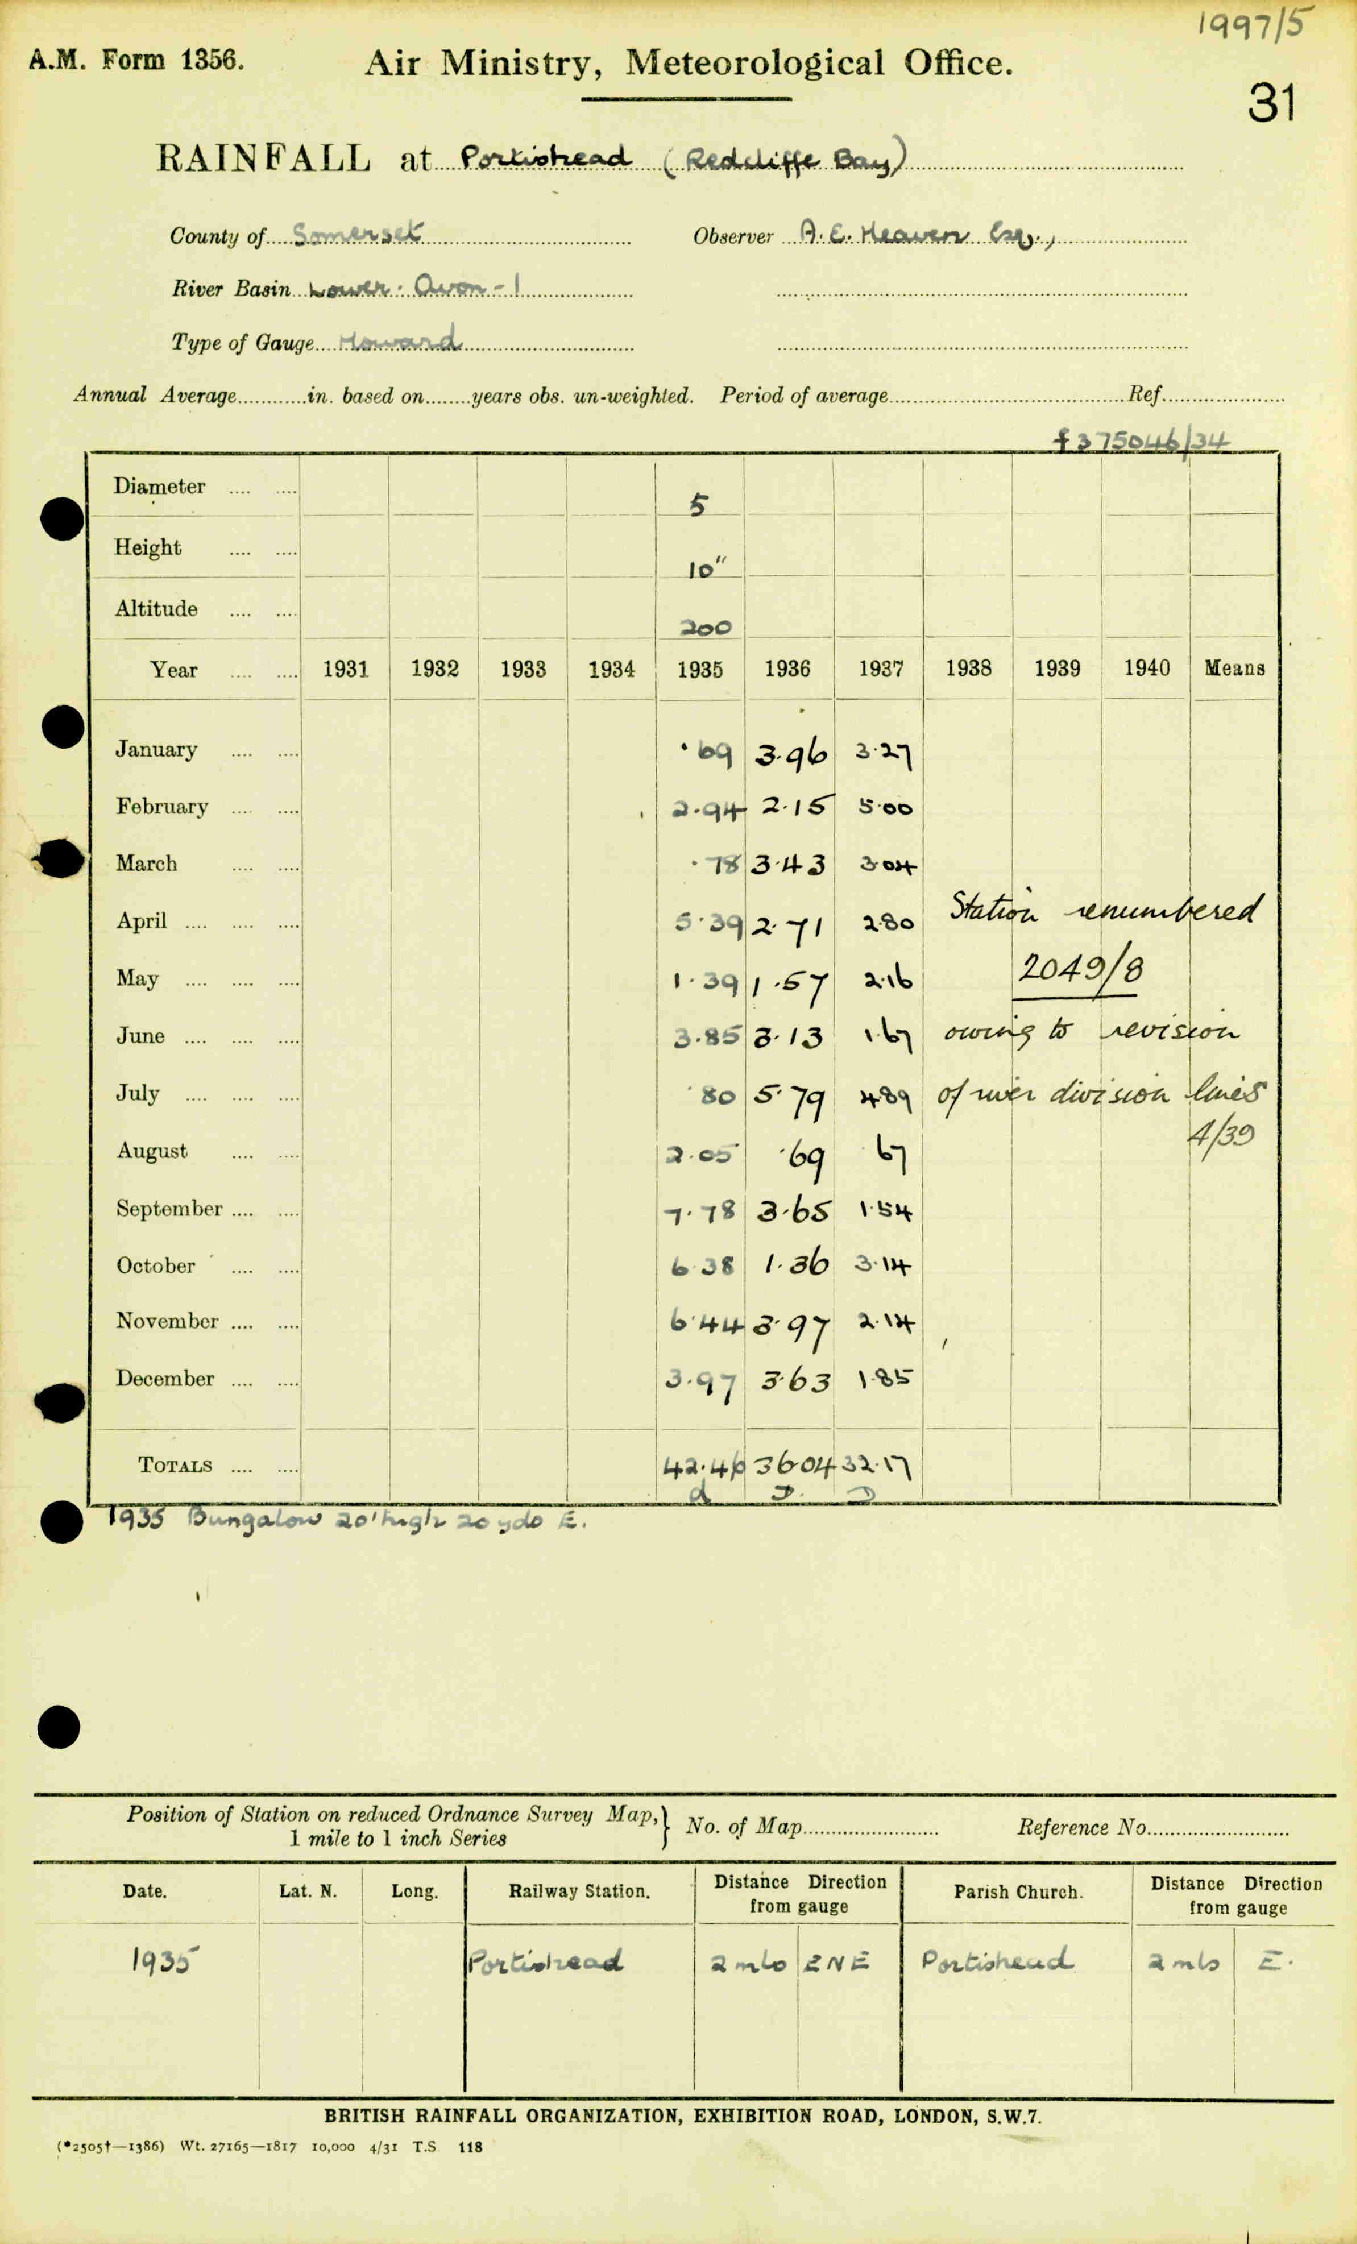 1997/5
A.M. Form 1356.
Air Ministry, Meteorological Office.
31
RAINFALL at Portishead (Redcliffe Bay)
County of Somerset Observer A. E. Heaven Esq.,
River Basin Lower Avon - 1
Type of Gauge Howard
Annual Average............in. based on........years obs. un-weighted. Period of average............ Ref............
f 375046/34
Diameter .... .... 5
Height .... .... 10"
Altitude .... .... 200
Year .... .... 1931 1932 1933 1934 1935 1936 1937 1938 1939 1940 Means
January .... .... ·69 3·96 3·27
February .... .... 2·94 2·15 5·00
March .... .... ·78 3·43 3·04
April .... .... .... 5·39 2·71 2·80 Station renumbered
May .... .... .... 1·39 1·57 2·16 2049/8
June .... .... .... 3·85 3·13 1·67 owing to revision
July .... .... .... ·80 5·79 4·89 of river division lines
4/39
August .... .... 2·05 ·69 ·67
September .... .... 7·78 3·65 1·54
October .... .... 6·38 1·36 3·14
November .... .... 6·44 3·97 2·14
December .... .... 3·97 3·63 1·85
TOTALS .... .... 42·46 36·04 32·17
d D D
1935 Bungalow 20' high 20 yds E.
Position of Station on reduced Ordnance Survey Map,} No. of Map............ Reference No............
1 mile to 1 inch Series
Date. Lat. N. Long. Railway Station. Distance from gauge Direction Parish Church. Distance from gauge Direction
1935 Portishead 2 mls ENE Portishead 2 mls E.
BRITISH RAINFALL ORGANIZATION, EXHIBITION ROAD, LONDON, S.W.7.
(*2505†—1386) Wt. 27165—1817 10,000 4/31 T.S 118